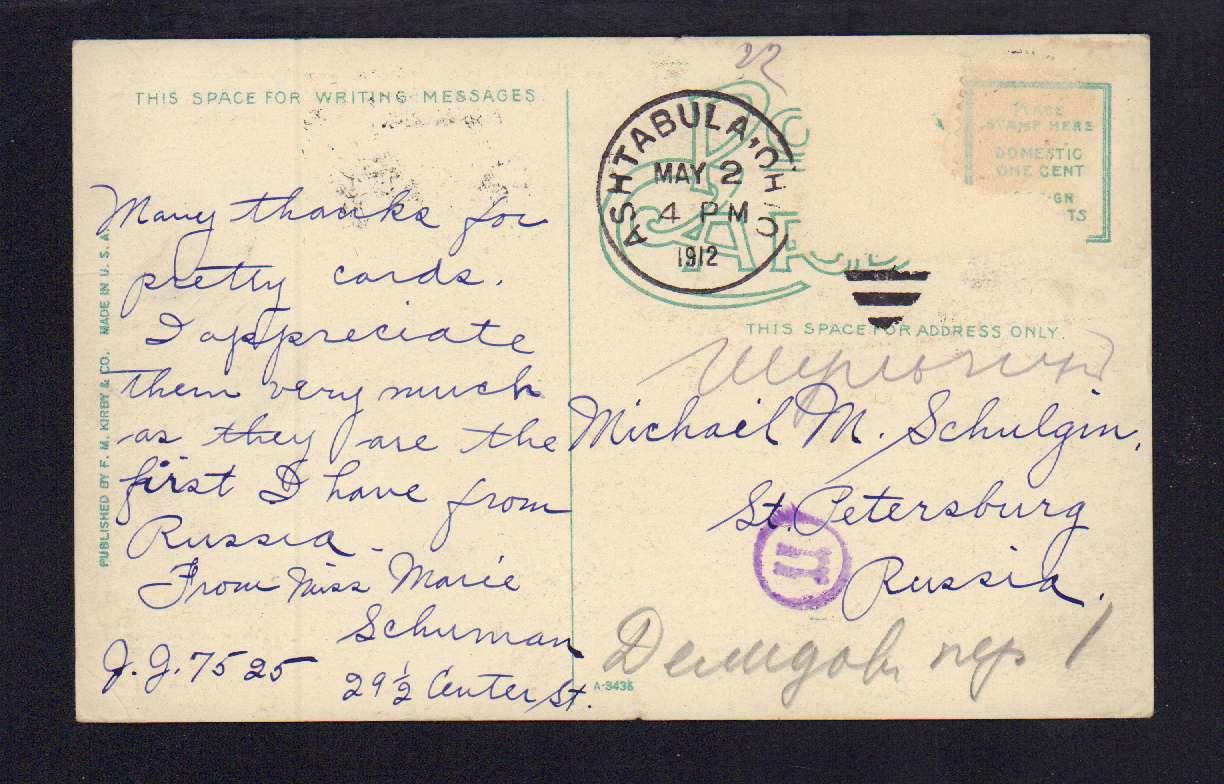 THIS SPACE FOR WRITING MESSAGES
Many thanks for
pretty cards.
I appreciate
them very much
as they are the
first I have from
Russia -
From Miss Marie
Schuman
J.J. 7525
29 1/2 Center St.
PUBLISHED BY F. M. KIRBY & CO. MADE IN U. S. A.
22
ASHTABULA, OHIO
MAY 2
4 PM
1912
PLACE
STAMP HERE
DOMESTIC
ONE CENT
GN
TS
THIS SPACE FOR ADDRESS ONLY.
Michail M. Schulgin,
St. Petersburg
Russia.
Демидовъ пер 1
A-3435